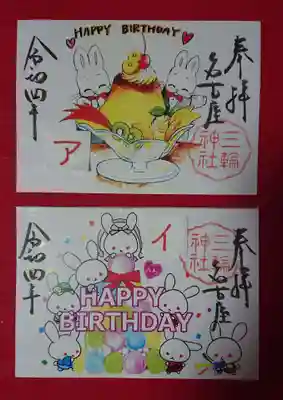 HAPPY BIRTHDAY
奉拝
名古屋
三輪
神社
令和四年
ア
奉拝
名古屋
三輪
神社
イ
HAPPY
BIRTHDAY
令和四年